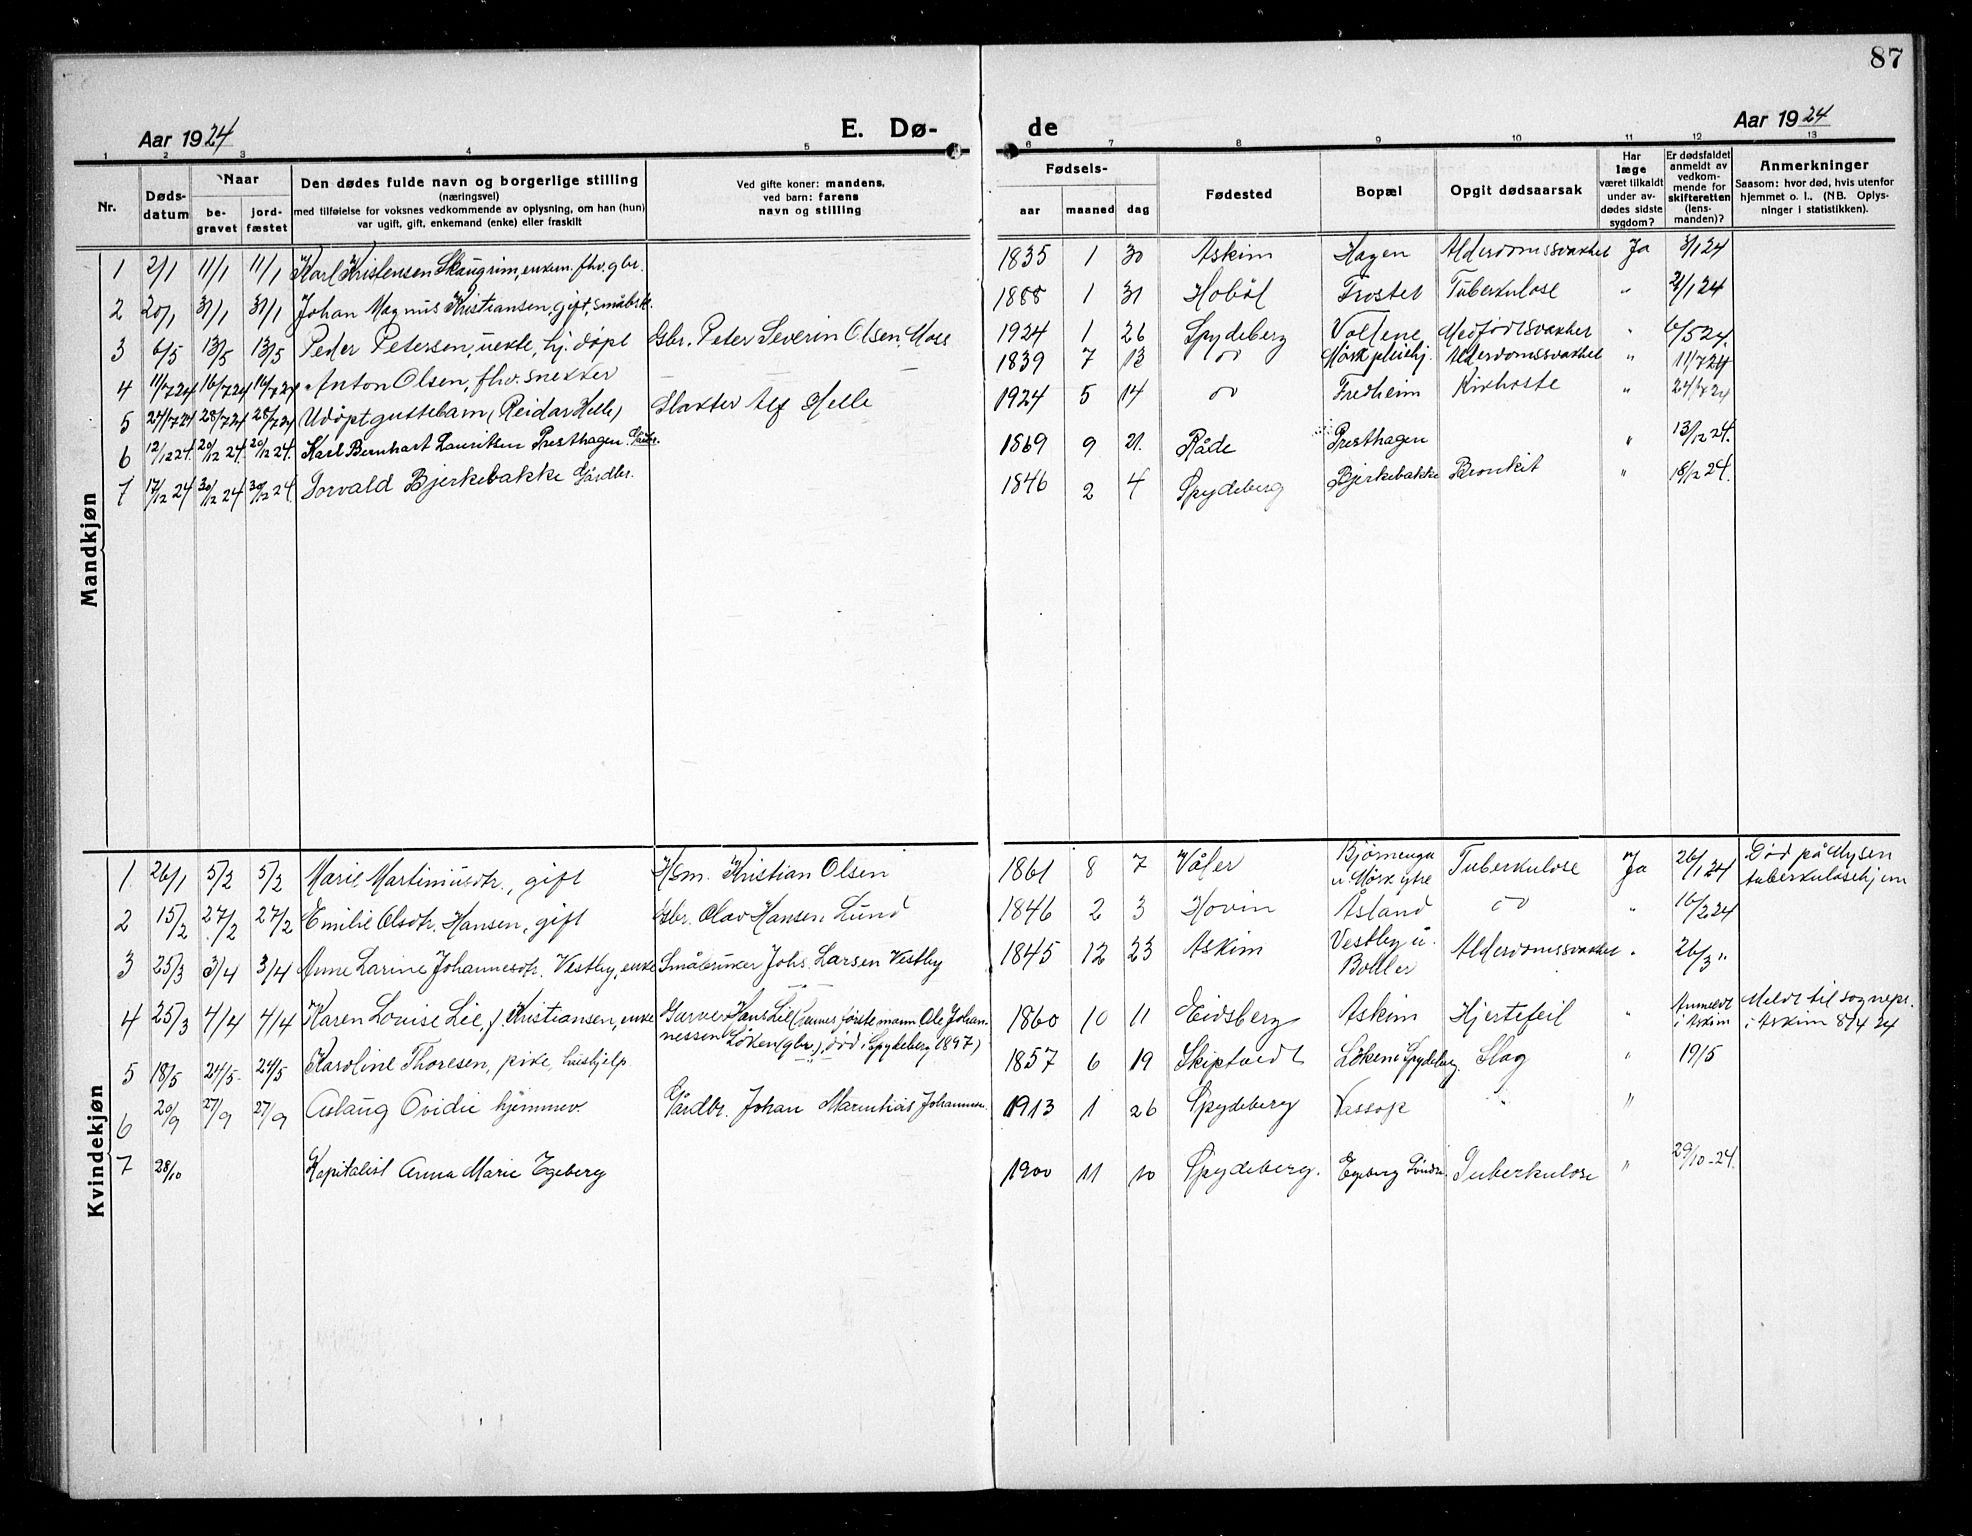 87
Aar 1924
E. Dø-
de
Aar 1924
1 2 3 4 5 6 7 8 9 10 11 12 13
Nr.
Døds-
datum
Naar
be-
gravet
jord-
fæstet
Den dødes fulde navn og borgerlige stilling
(næringsvei)
med tilføielse for voksnes vedkommende av oplysning, om han (hun)
var ugift, gift, enkemand (enke) eller fraskilt
Ved gifte koner: mandens,
ved barn: farens
navn og stilling
Fødsels-
aar maaned dag
Fødested
Bopæl
Opgit dødsaarsak
Har
læge
været tilkaldt
under av-
dødes sidste
sygdom?
Er dødsfaldet
anmeldt av
vedkom-
mende for
skifteretten
(lens-
manden)?
Anmerkninger
Saasom: hvor død, hvis utenfor
hjemmet o. l.. (NB. Oplys-
ninger i statistikken).
Mandkjøn
1 2/1 11/1 11/1 Karl Kristensen Skaugrim, enkem. fhv. gbr. 1835 1 30 Askim Hagen Alderdomssvakhet Ja 3/1 24
2 20/1 31/1 31/1 Johan Magnus Kristiansen, gift, småbrk. 1888 1 31 Hobøl Frostet Tuberkulose " 21/1 24
3 6/5 13/5 13/5 Peder Petersen, uekte, hj. døpt Gbr. Peter Severin Olsen, Moss 1924 1 26 Spydeberg Vollene Medfødt svakhet " 6/5 24
4 11/7 24 16/7 24 16/7 24 Anton Olsen, fhv. snekker — — 1839 7 13 do Mørk pleiehj. Alderdomssvakhet " 11/7 24
5 24/7 24 28/7 24 28/7 24 Udøpt guttebarn (Reidar Helle) Slakter Alf Helle 1924 5 14 do Fredheim Kikhoste " 24/7 24
6 12/12 24 20/12 24. 20/12 24. Karl Bernhart Lauritsen Presthagen Gårdbr. 1869 9 21. Råde Presthagen " 13/12 24.
7 17/12 24 30/12 24 30/12 24. Torvald Bjerkebakke Gårdbr. 1846 2 4 Spydeberg Bjerkebakke Bronkit " 18/12 24.
Kvindekjøn
1. 26/1 5/2 5/2 Marie Martinusdtr., gift Hsm. Kristian Olsen 1861 8 7 Våler Bjørnenga
u. Mørk ytre Tuberkulose Ja 26/1 24 Død på Mysen
tuberkulosehjem
2 15/2 27/2 27/2 Emilie Olsdtr. Hansen, gift Gbr. Olav Hansen Lund 1846 2 3 Hovin Åsland do " 16/2 24
3 25/3 3/4 3/4 Anne Larine Johannesdtr. Vestby, enke Småbruker Johs. Larsen Vestby 1845 12 23 Askim Vestby u.
Boller Alderdomssvakhet " 26/3 "
4 25/3 4/4 4/4 Karen Lovise Lie, f. Kristiansen, enke Garver Hans Lie (hennes første mann Ole Johan-
nessen Løken (gbr.), død i Spydeberg 1897) 1860 10 11 Eidsberg Askim Hjertefeil " Anmeldt
i Askim Meldt til sognepr.
i Askim 8/4 24
5 18/5 24/5 24/5 Karoline Thoresen, pike, hushjelp 1857 6 19 Skiptvedt Løken i Spydeberg Slag " 19/5
6 20/9 27/9 27/9 Aslaug Ovidie hjemmev. Gårdbr. Johan Marenhius Johannesen. 1913 1 26 Spydeberg Vassop " "
7 28/10 Kapitalist Anna Marie Egeberg 1900 11 10 Spydeberg. Egeberg Søndre Tuberkulose " 29/10-24.